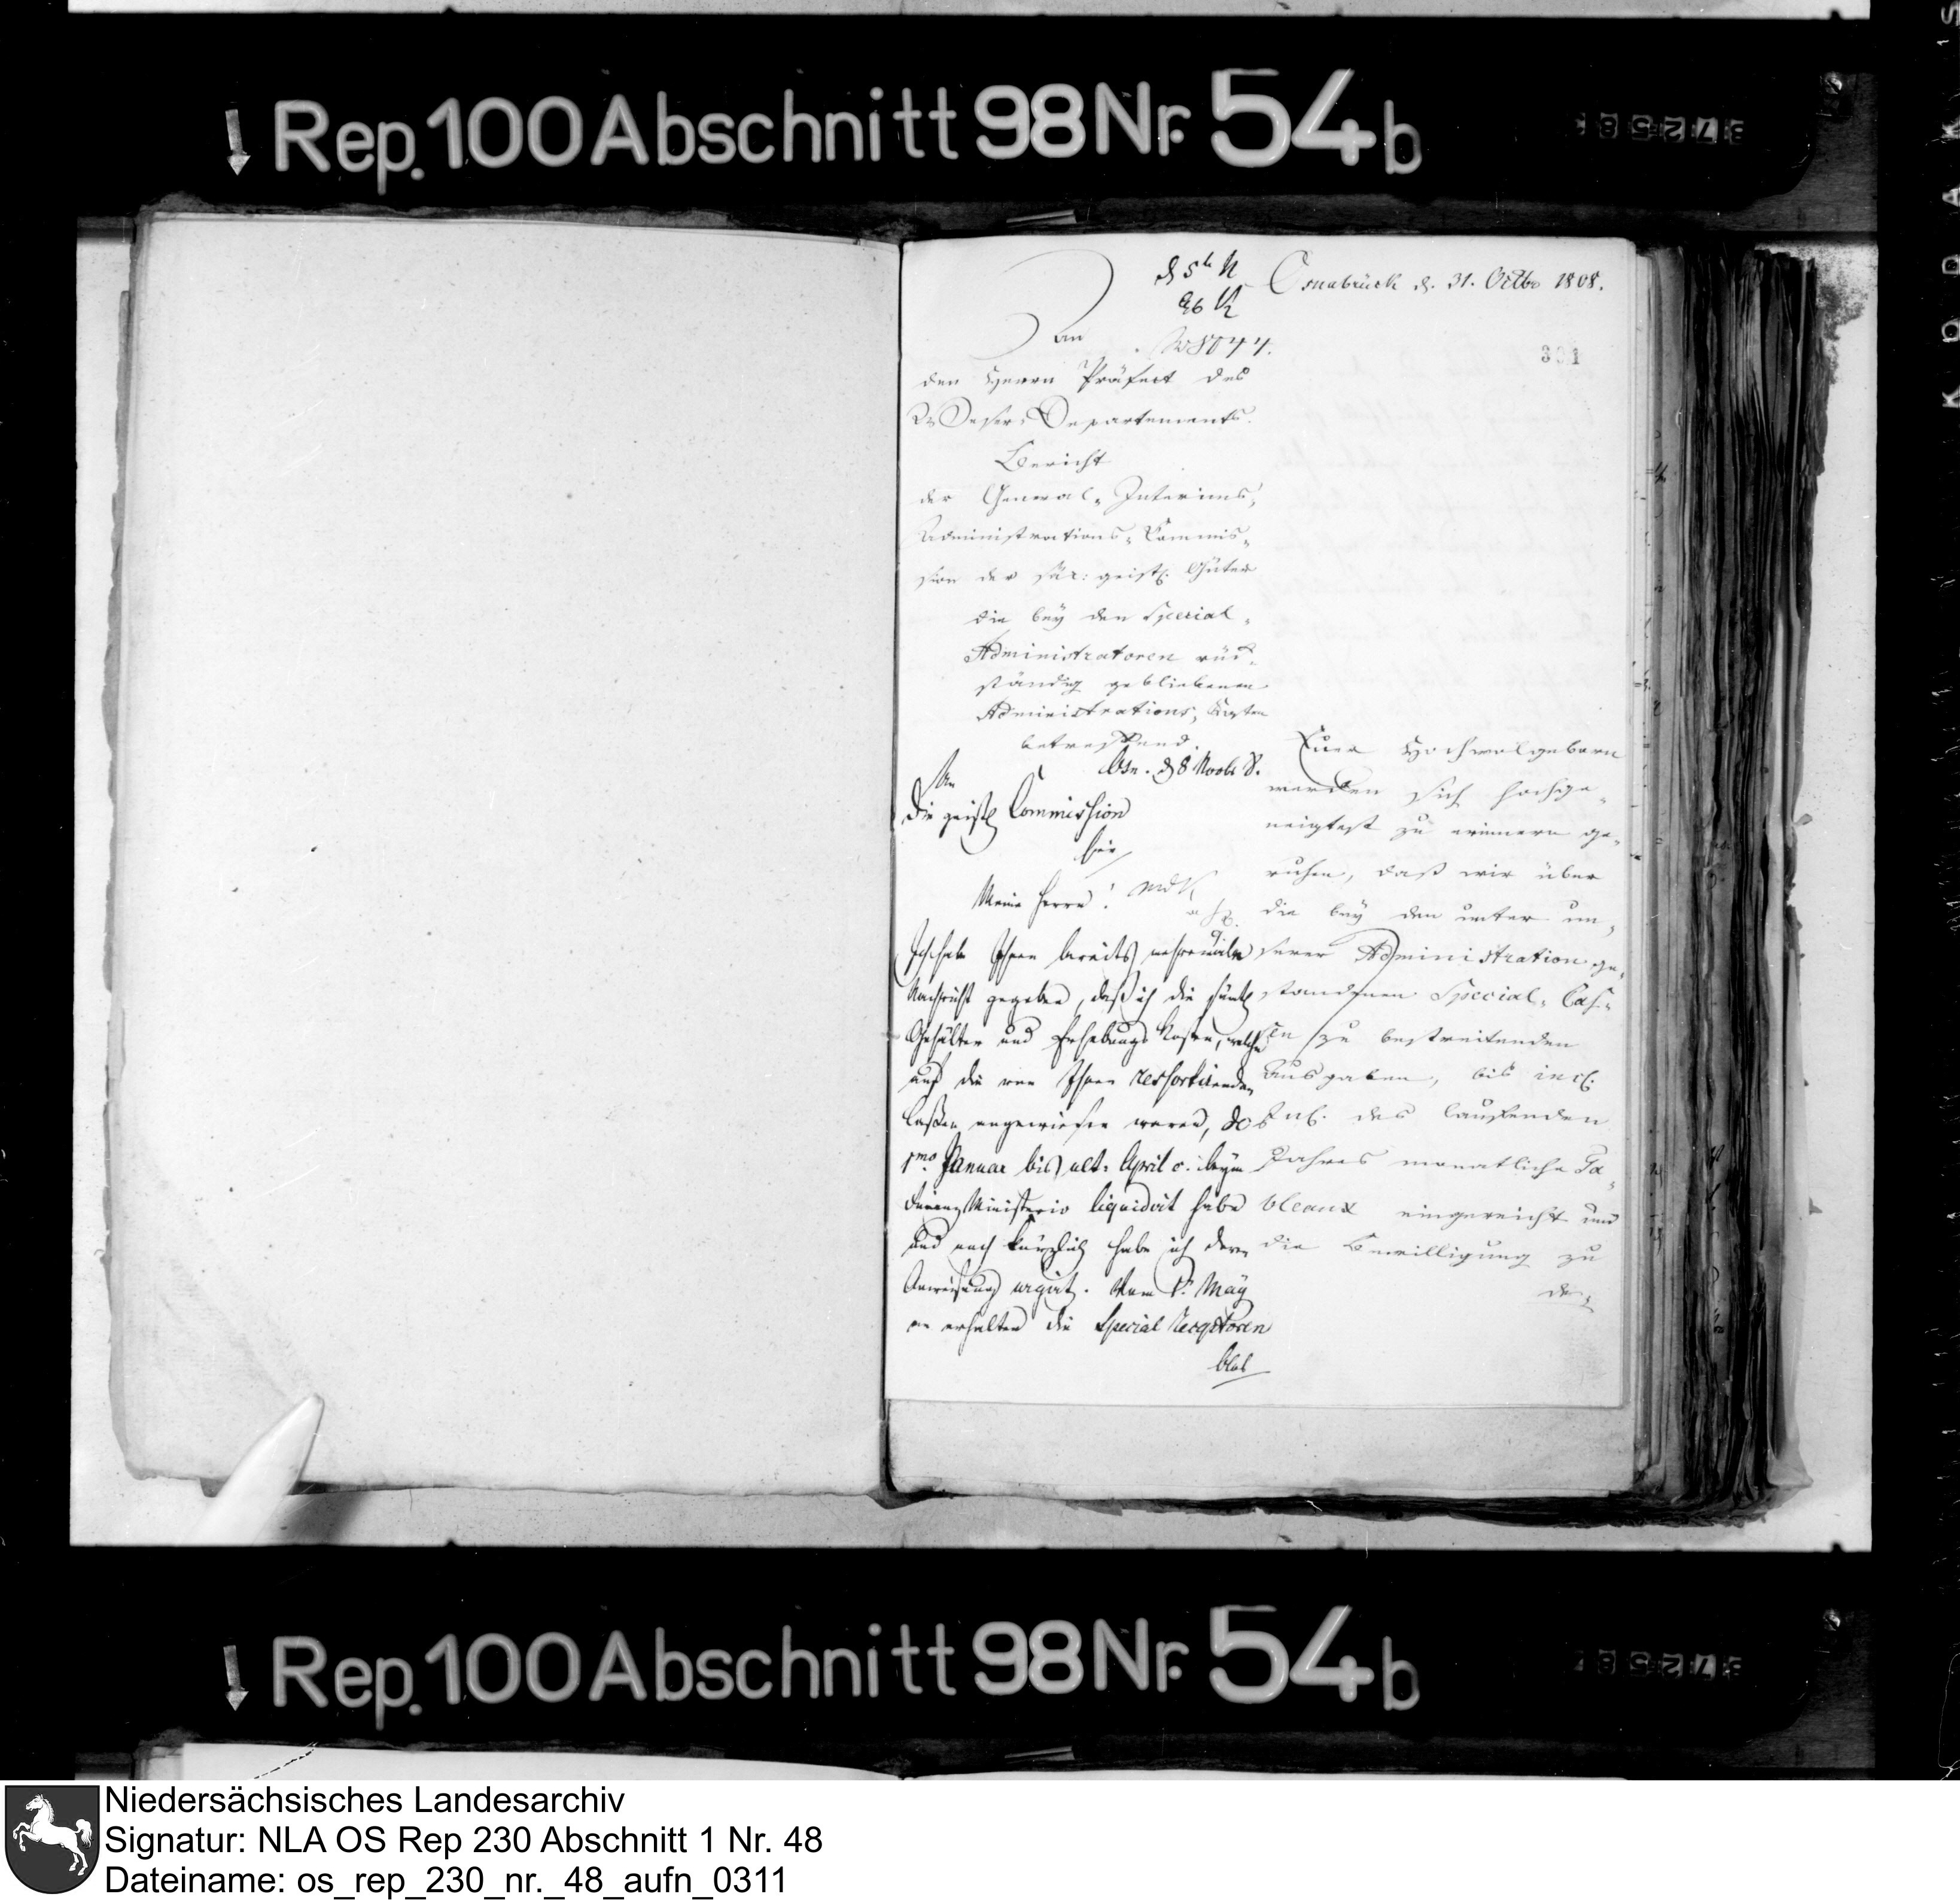 Rep. 100 Abschnitt 98 Nr. 54b
Osnabrück d. 31. Octbr 1808.
301
An
den Herrn Präfect des
Weser-Departements.
Bericht
der General-Interims-
Administrations-Commis-
sion der säc: geistl. Güter
die bey den Special-
Administratoren rück-
ständig gebliebenen
Administrations-Kosten
betreffend.
Euer Hochwolgeborn
werden sich hochge-
neigtest zu erinnern ge-
ruhen, daß wir über
die bey den unter un-
serer Administration ge-
standenen Special-Cas-
sen zu bestreitenden
Ausgaben, bis incl.
des laufenden
Jahres monatliche Ta-
bleaux eingereicht und
die Bewilligung zu
der-
Osn. d 8 Novbr 8.
An
die geistl Commission
hier
Meine Herrn!
Ich habe Ihnen bereits mehrmaln
Nachricht gegeben, daß ich die sämtl
Gehälter und Erhebungs Kosten, welche
auf die von Ihnen ressortirenden
Cassen angewiesen waren, de
1mo Januar bis ult. April c. beym
Finanz Ministerio liquidirt habe
und noch kürzlich habe ich deren
Anweisung urgirt. Vom 1t May
an erhalten die Special Receptoren
Rep. 100 Abschnitt 98 Nr. 54b
Niedersächsisches Landesarchiv
Signatur: NLA OS Rep 230 Abschnitt 1 Nr. 48
Dateiname: os_rep_230_nr._48_aufn_0311